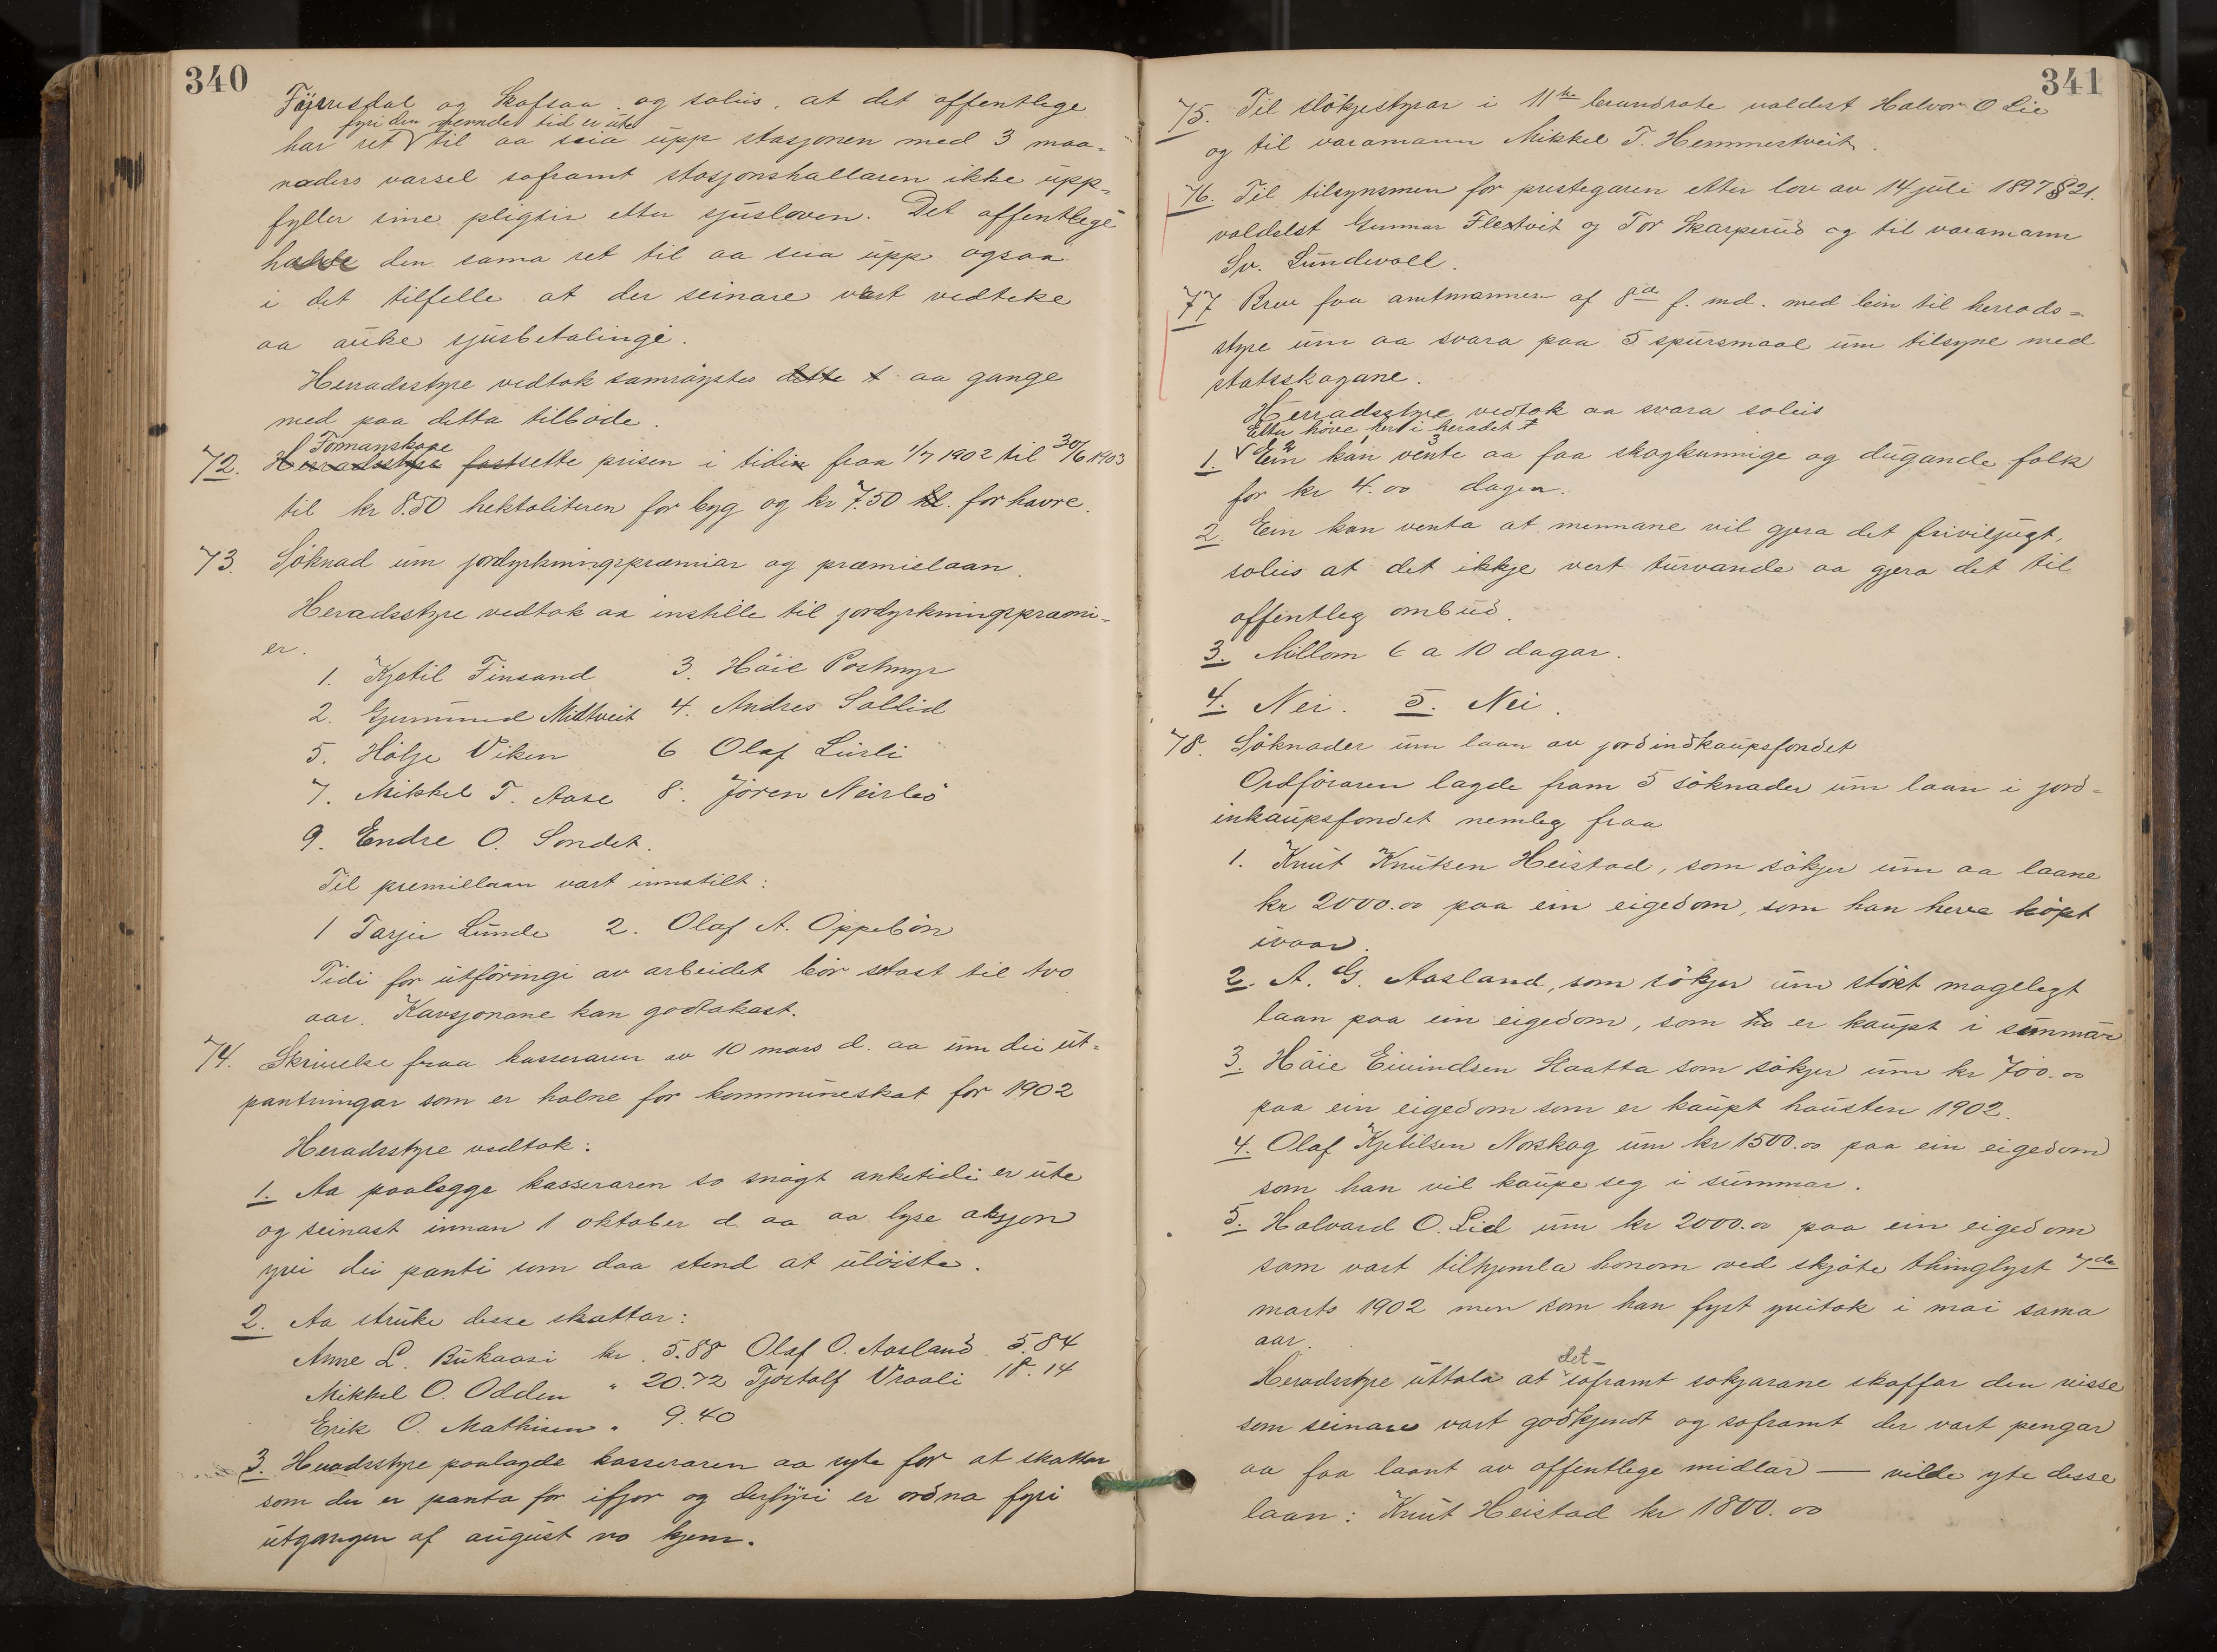 340
Fyrisdal og Skafsaa og soleis, at det offentlege
fyri den nemnde tid er ute
har ret til aa seia upp stasjonen med 3 maa-
naders varsel soframt stasjonshallaren ikke upp-
fyller sine pligtir etter sjusloven. Det offentlege
hadde den sama ret til aa seia upp ogsaa
i det tilfelle at der seinare vert vedteke
aa auke sjusbetalingi.
Herradsstyre vedtok samröystes dette t aa gange
med paa detta tilbode.
Formanskape
72. Herradsstyre fastsette prisen i tidin fraa 1/7 1902 til 30/6 1903
til kr 8.50 hektoliteren for byg og kr 7.50 hl. for havre.
73. Söknad um jordyrkningspræmiar og præmielaan.
Heradsstyre vedtok aa instille til jordyrkningspræmi-
er.
1. Kjetil Finsand 3. Häie Postmyr
2. Gunnund Midtveit 4. Andres Sollid
5. Hölje Viken 6 Olaf Lürli
7. Mikkel T. Aase 8. Jören Neirbö
9. Endre O. Sondet.
Til premielaan vart innstilt:
1 Tarjei Lunde 2. Olaf A. Oppebön
Tidi for utföringi av arbeidet bör setast til tvo
aar. Kavsjonane kan godtakast.
74. Skrivelse fraa kasseraren av 10 mars d. aa um dei ut-
pantningar som er haldne for kommuneskat for 1902
Heradsstyre vedtok:
1. Aa paalegge kasseraren so snögt anketidi er ute
og seinast innan 1 oktober d. aa aa lyse aksjon
yvi dei panti som daa stend at ulöiste.
2. Aa struke desse skattar:
Anne L. Bukaasi kr. 5.88 Olaf O. Aasland. 5.84
Mikkel O. Odden " 20.72 Tjostolf Vraali 18.14
Erik O. Mathisen " 9.40
3. Heradsstyre paalagde kasseraren aa syte for at skatten
som der er panta for ifjor og derfyri er ordna fyri
utgangen af august no kjem.
341
75. Til slökjestyrar i 11te brandrote valdest Halvor O Lie
og til varamann Mikkel T. Hemmestveit.
76. Til tilsynsmen for prestegaren etter lov av 14 juli 1897 § 21.
valdest Gunnar Flextveit og Tor Skarperud og til varamann
Sv. Lundevall.
77 Brev fraa amtmannen af 8de f. md. med bön til herrads-
styre um aa svara paa 5 spursmaal um tilsyne med
statsskogane.
Herradsstyre vedtok aa svara soleis
Etter höve her i heradet
1. Ein kan vente aa faa skogkunnige og dugande folk
for kr 4.00 dagen.
2. Ein kan venta at mennane vil gjera det friviljugt,
soleis at det ikkje vert turvande aa gjera det til
offentleg ombud.
3. Millom 6 a 10 dagar.
4. Nei. 5. Nei.
78. Söknader um laan av jordindkaupsfondet
Ordföraren lagde fram 5 söknader um laan i jord-
inkaupsfondet nemleg fraa
1. Knut Knutsen Heistad, som sökjer um aa laane
kr 2000.00 paa ein eigedom, som han heve köpt
ivaar.
2. A. G. Aasland, som sökjer um störst mogelegt
laan paa ein eigedom, som ha er kaupt i summar
3. Häie Eivindsen Haatta som sökjer um kr 700.00
paa ein eigedom som er kaupt hausten 1902.
4. Olaf Kjetilsen Norskog um kr 1500.00 paa ein eigedom
som han vil kaupe seg i summar.
5. Halvard O. Lid um kr 2000.00 paa ein eigedom
som vart tilhjemla honom ved skjöte thinglyst 7de
marts 1902 men som han fyst yvitok i mai sama
aar.
det
Heradsstyre uttala at soframt sokjarane skaffar den visse
som seinare vart godkjendt og soframt der vart pengar
aa faa laant av offentlege midlar — vilde yte desse
laan: Knut Heistad kr 1800.00